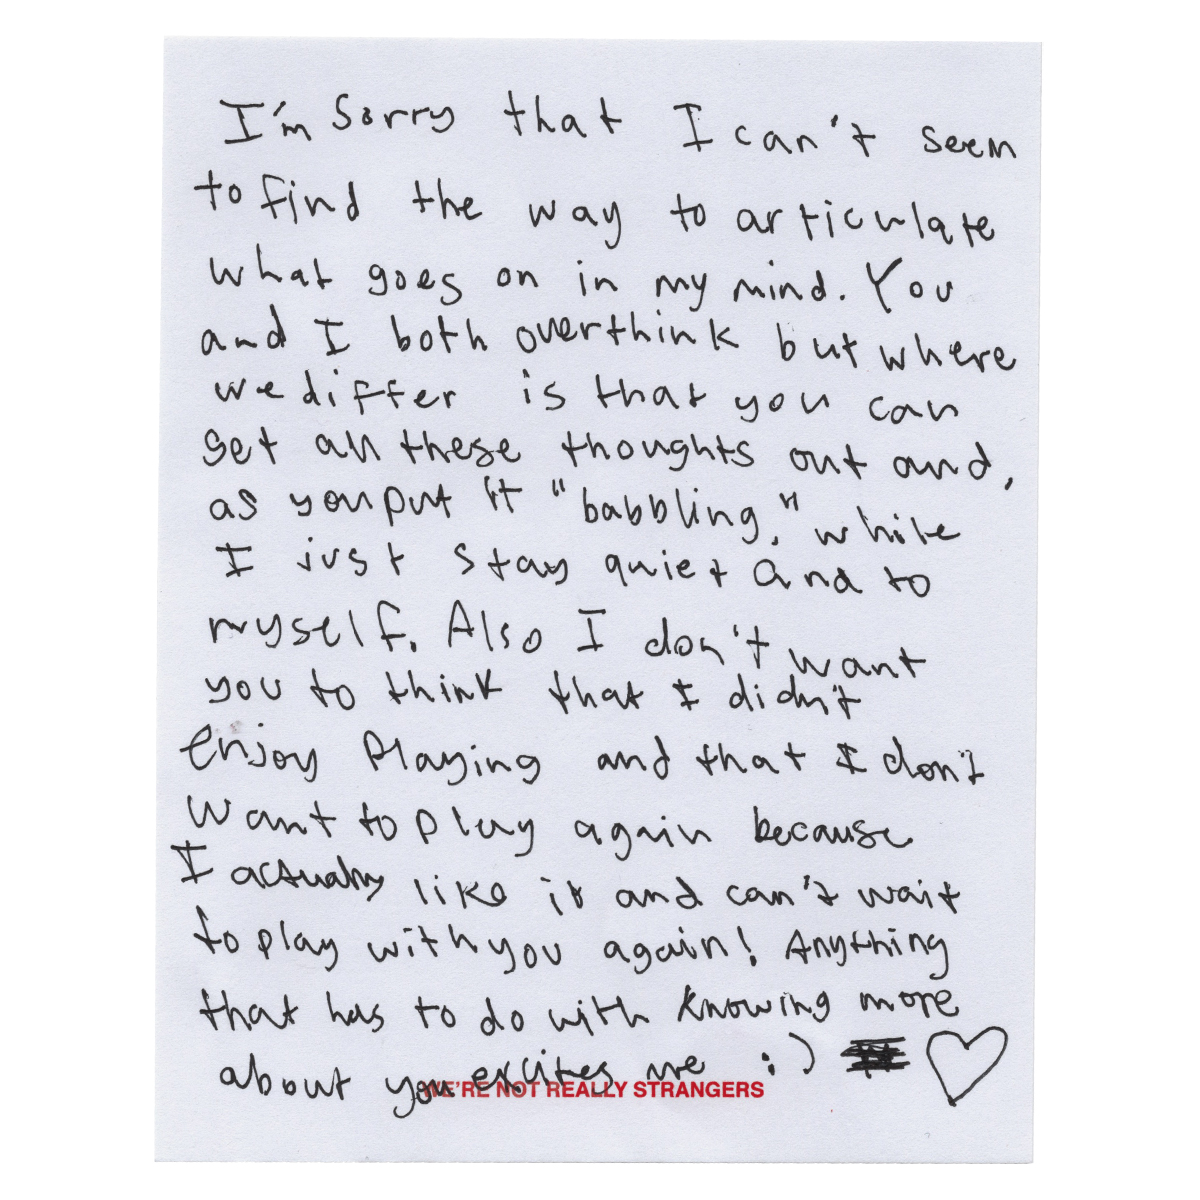 I'm Sorry that I can't seem
to find the way to articulate
what goes on in my mind. You
and I both overthink but where
we differ is that you can
get all these thoughts out and,
as you put it "babbling," while
I just stay quiet and to
myself. Also I don't want
you to think that I didn't
enjoy Playing and that I don't
want to play again because
I actually like it and can't wait
to play with you again! Anything
that has to do with knowing more
about you excites me :) ♡
WE'RE NOT REALLY STRANGERS